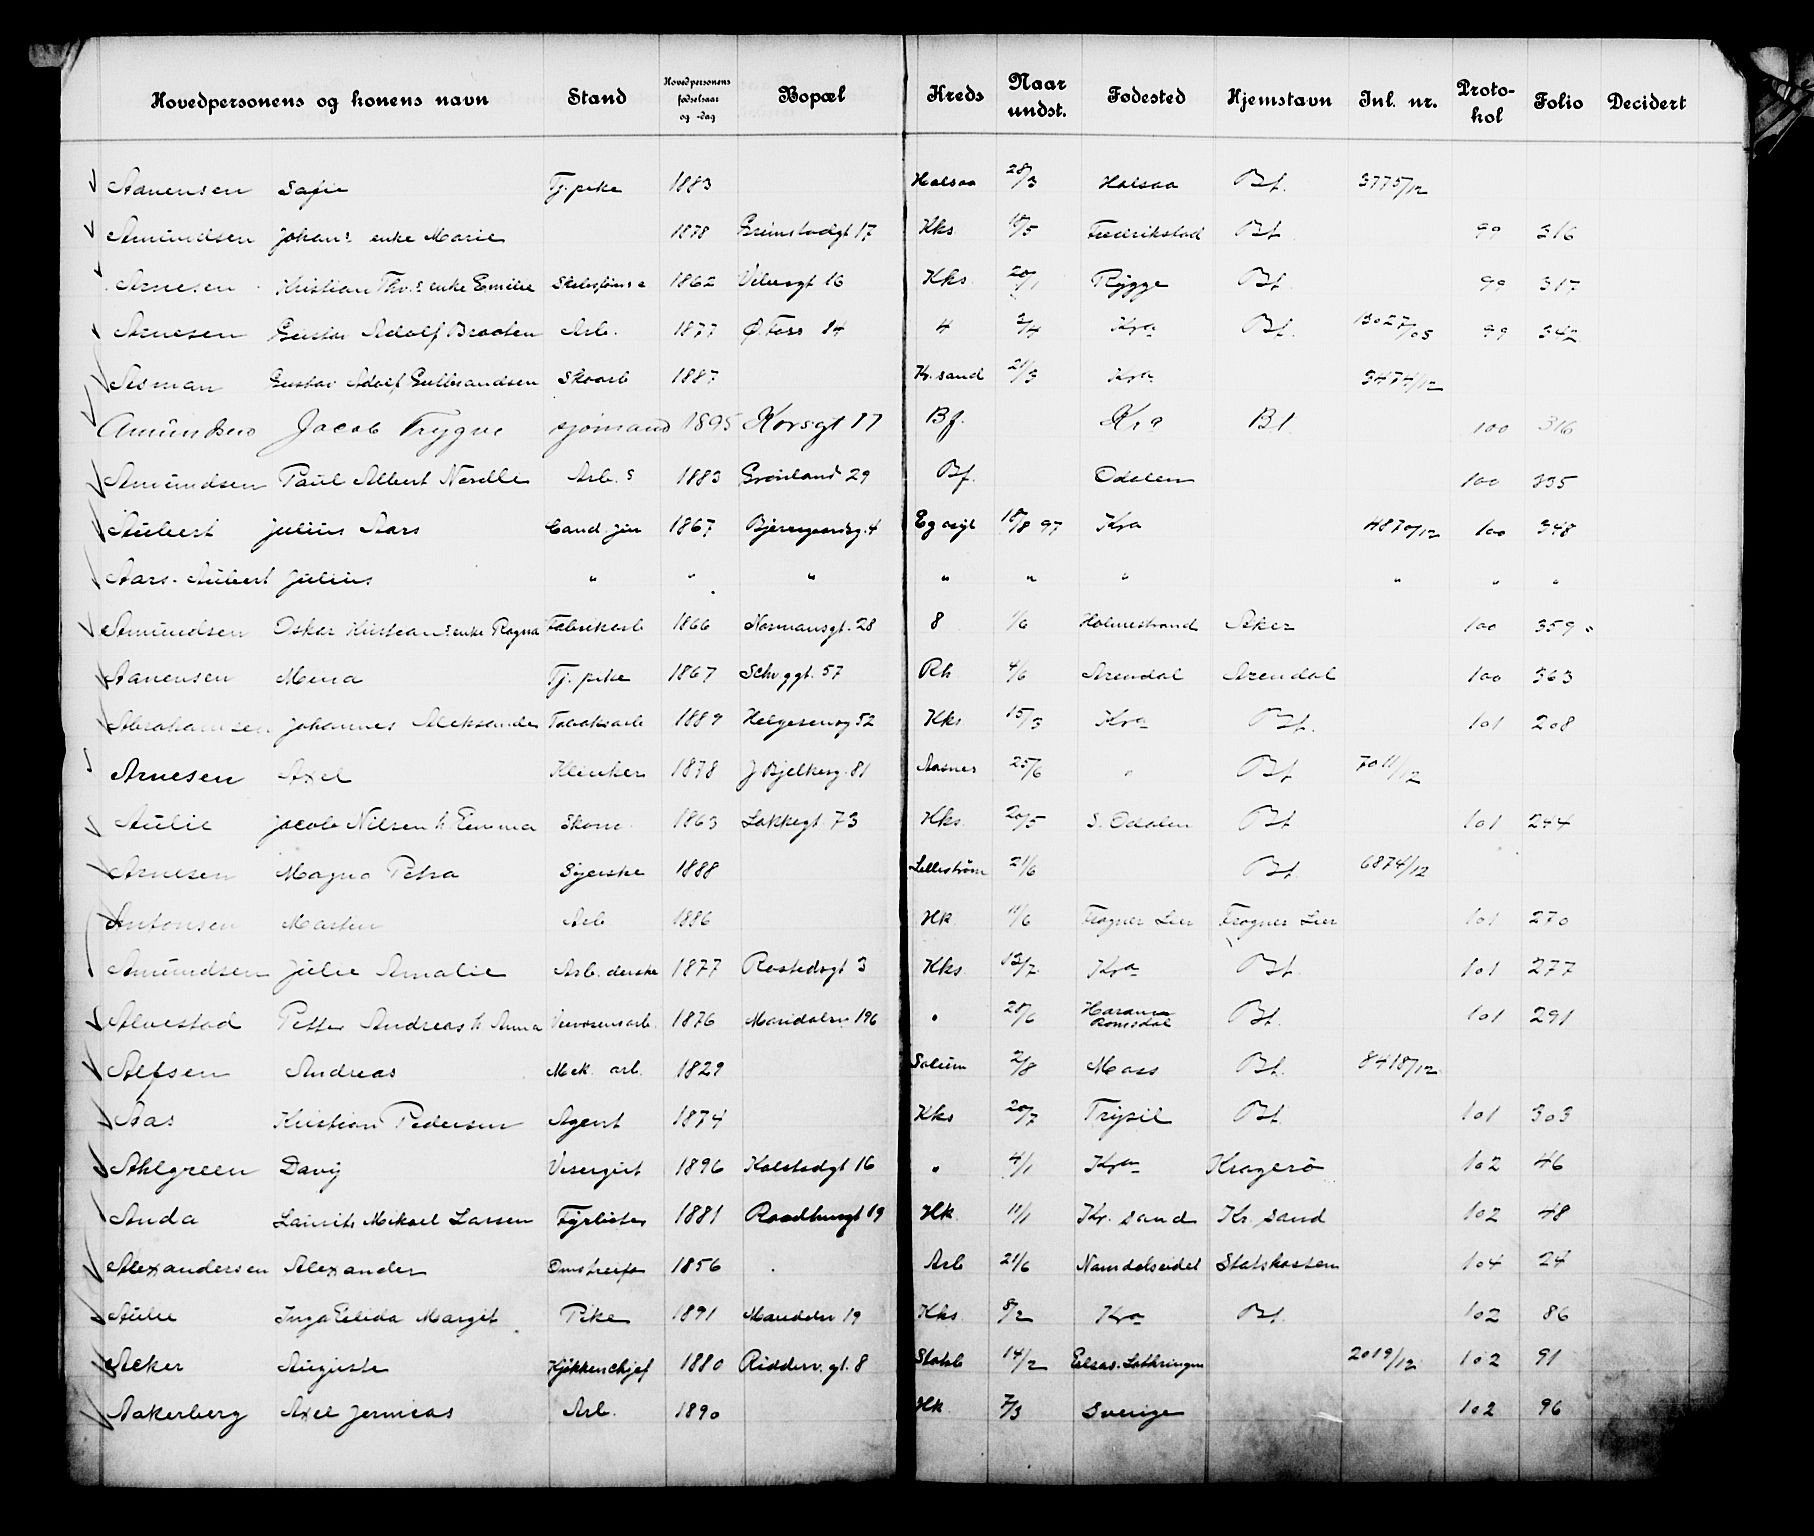 Hovedpersonens og konens navn Stand Hovedpersonens fødselsaar og -dag Bopæl Kreds Naar undst. Fødested Hjemstavn Jnl. nr. Proto-kol Folio Decidert
Aanensen Sofie Tj. pike 1883 Halsaa 28/3 Halsaa Bf. 3775/12
Amundsen Johans enke Marie 1878 Grimstadgt 17 Kks 18/5 Fredrikstad Bf. 99 316
Arnesen Kristian Thv.s enke Emilie 1862 Velusgt 16 Kks. 20/1 Rygge Bf. 99 317
Arnesen Gustav Adolf Braaten Arb. 1877 Ø. Foss 14 4 2/4 Kra Bf. 13027/05 99 342
Gustav Adolf Gulbrandsen Skoarb 1887 Kr. sand 21/3 Kra 3474/12
Amundsen Jacob Trygve sjømand 1895 Korsgt 17 Bf. Kra Bf. 100 316
Amundsen Paul Albert Nordlie Arb. s 1883 Grønland 29 Bf. Odalen 100 335
Aubert Julius Aars Cand. jur 1867 Bjerregaardsg. 4 18/8 97 Kra 4870/12 100 348
Aars-Aubert Julius " " " " " " " " "
Amundsen Oskar Kristians enke Ragna Fabrikarb 1866 Normansgt. 28 8 1/6 Holmestrand Aker 100 359
Aanensen Mena Tj. pike 1867 Schv ggt. 57 Rh 4/6 Arendal Arendal 100 363
Abrahamsen Johannes Aleksander Tobaksarb 1889 Helgesensg 52 Kks 15/3 Kra Bf. 101 208
Arnesen Axel Klinker 1878 J Bjelkesg. 81 Aasnes 25/6 " Bf. 7011/12
Aulie Jacob Nilsen h. Emma Skom. 1863 Lakkegt 73 Kks. 20/5 S. Odalen Bf 101 244
Arnesen Magna Petra Syerske 1888 Lillestrøm 21/6 Bf 6874/12
Antonsen Marten Arb 1886 Hk. 11/6 Frogner Lier Frogner Lier 101 270
Amundsen Julie Amalie Arb. derske 1877 Rostedsgt 3 Kks. 13/7 Kra Bf. 101 277
Alvestad Petter Andreas h Anna Veivæsensarb. 1876 Maridalsv 196 " 28/6 Haram Romsdal Bf. 101 291
Alfsen Andreas Mek. arb. 1829 Solum 2/8 Moss Bf. 8418/12
Aas Kristian Pedersen Agent 1874 Kks 20/7 Trysil Bf. 101 303
Ahlgreen Davy Visergut 1896 Kolstadgt 16 " 4/1 Kra Kragerø 102 46
Anda Laurits Mikael Larsen Fyrbøter 1881 Raadhusgt 19 Hk. 11/1 Kr. sand Kr. sand 102 48
Alexandersen Alexander Omstreifer 1856 Arb 21/6 Namdalseidet Statskassen 104 24
Aulie Inga Elida Margit Pike 1891 Maridalsv 19 Kks. 8/2 Kra Bf. 102 86
Acker Auguste Kjøkkenchef 1880 Ridderv. gt. 8 Statsb 14/2 Elsas-Lothringen 2019/12 102 91
Aakerberg Axel Jermias Arb. 1890 Hk 7/3 Sverige 102 96